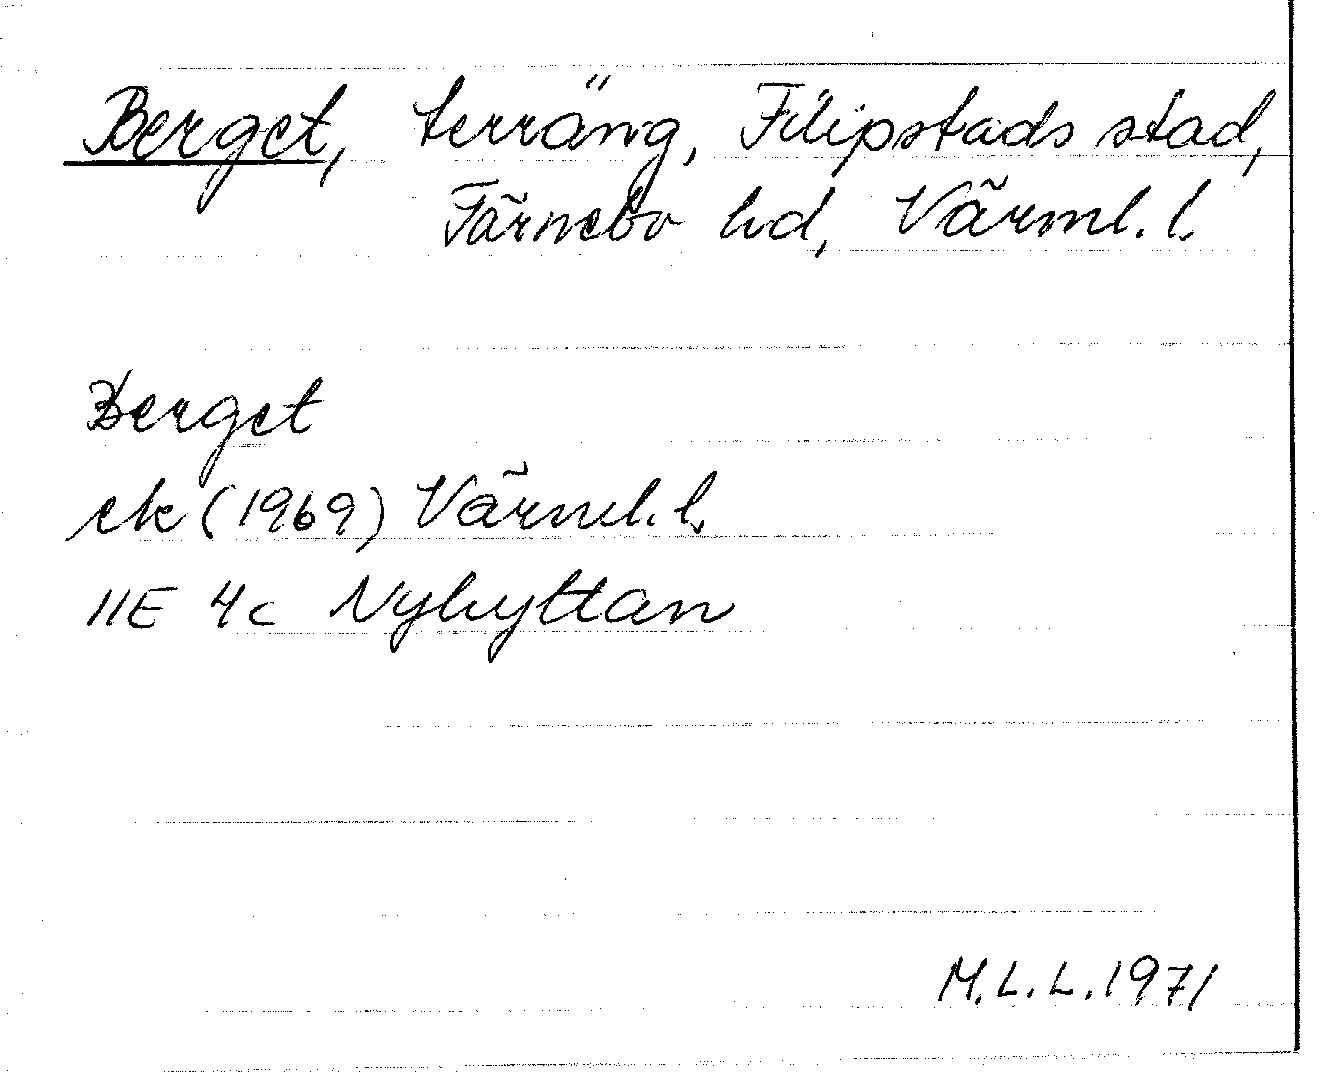 Berget, terräng, Filipstads stad,
Färnebo hd, Värml. l.
Berget
ek (1969) Värml. l.
11E 4c Nyhyttan
M.L.L. 1971